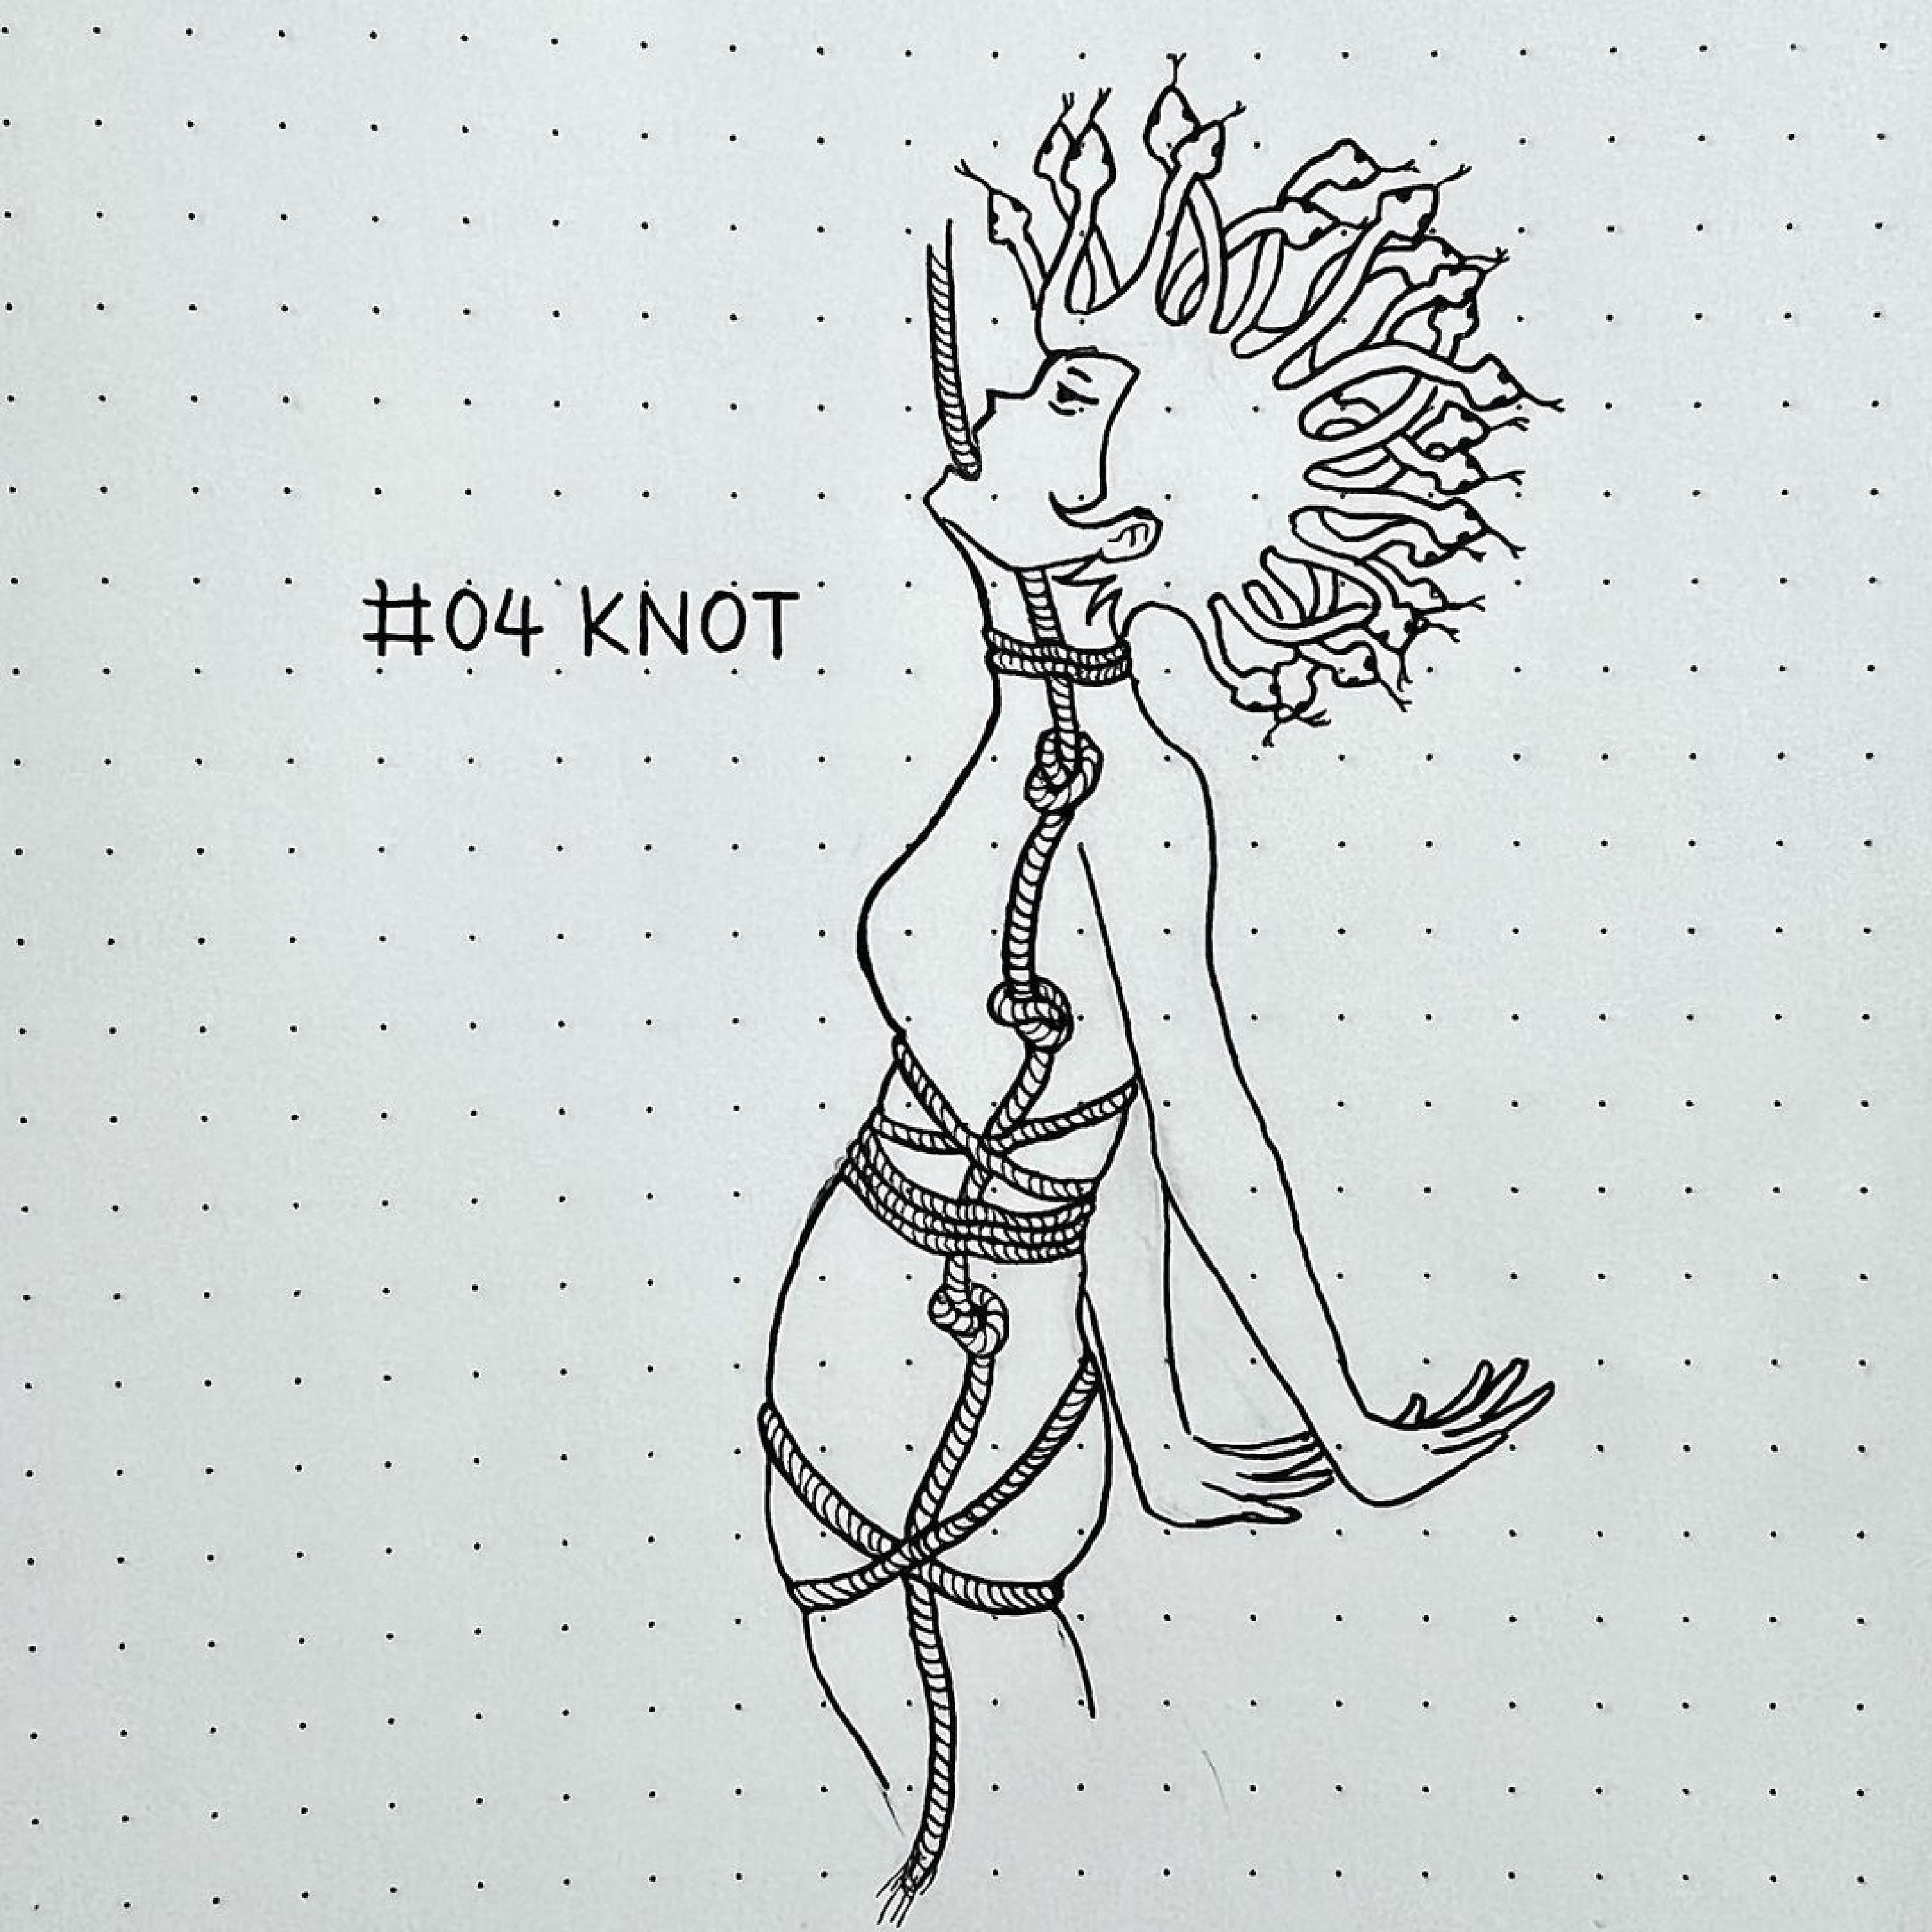 #04 KNOT